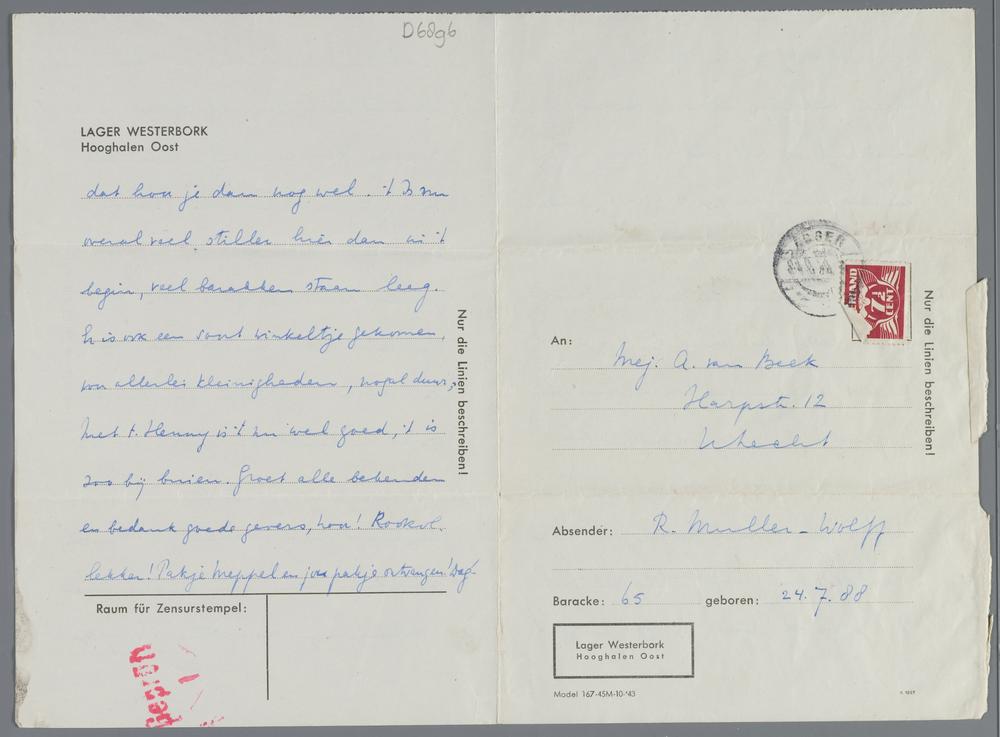 D6896
LAGER WESTERBORK
Hooghalen Oost
dat hou je dan nog wel. 't Is nu
overal veel stiller hier dan in 't
begin, veel barakken staan leeg.
is ook een soort winkeltje gekomen,
allerlei kleinigheden, nogal duur,
Met t. Henny is 't nu wel goed, 't is
zoo bij buien. Groet alle bekenden
en bedank goede gevers, hou!
lekker! Pakje Meppel en pakje ontvangen! Dag
Nur die Linien beschreiben!
Raum für Zensurstempel:
An:
Mej. A. van Beek
Harpstr. 12
Utrecht
Nur die Linien beschreiben!
7½
CENT
Absender: R. Muller-Wolff
Baracke: 65 geboren: 24.7.88
Lager Westerbork
Hooghalen Oost
Model 167-45M-10-'43